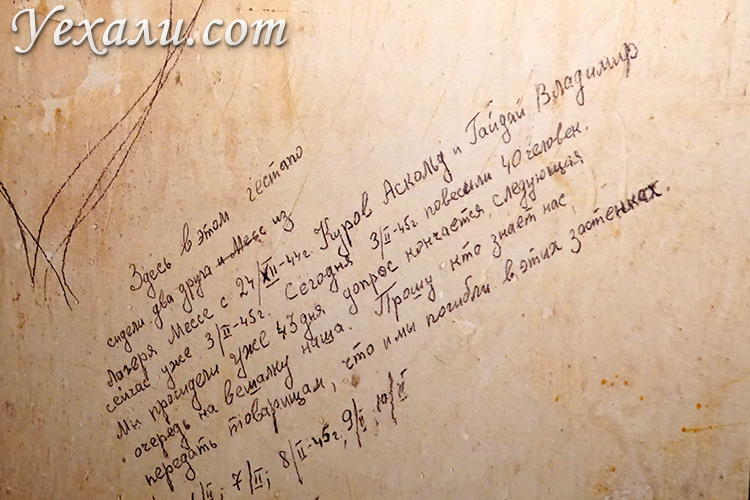 Уехали.com
Здесь в этом гестапо
сидели два друга и Месс из
лагеря Мессе с 24/XII-44г. Куров Аскольд и Гайдай Владимир
сейчас уже 3/II-45г. Сегодня 3/II-45г повесили 40 человек.
Мы просидели уже 43 дня допрос кончается, следующая
очередь на вешалку наша. Прошу кто знает нас,
передать товарищам, что и мы погибли в этих застенках.
/II; 7/II; 8/II-45г; 9/II; 10/II